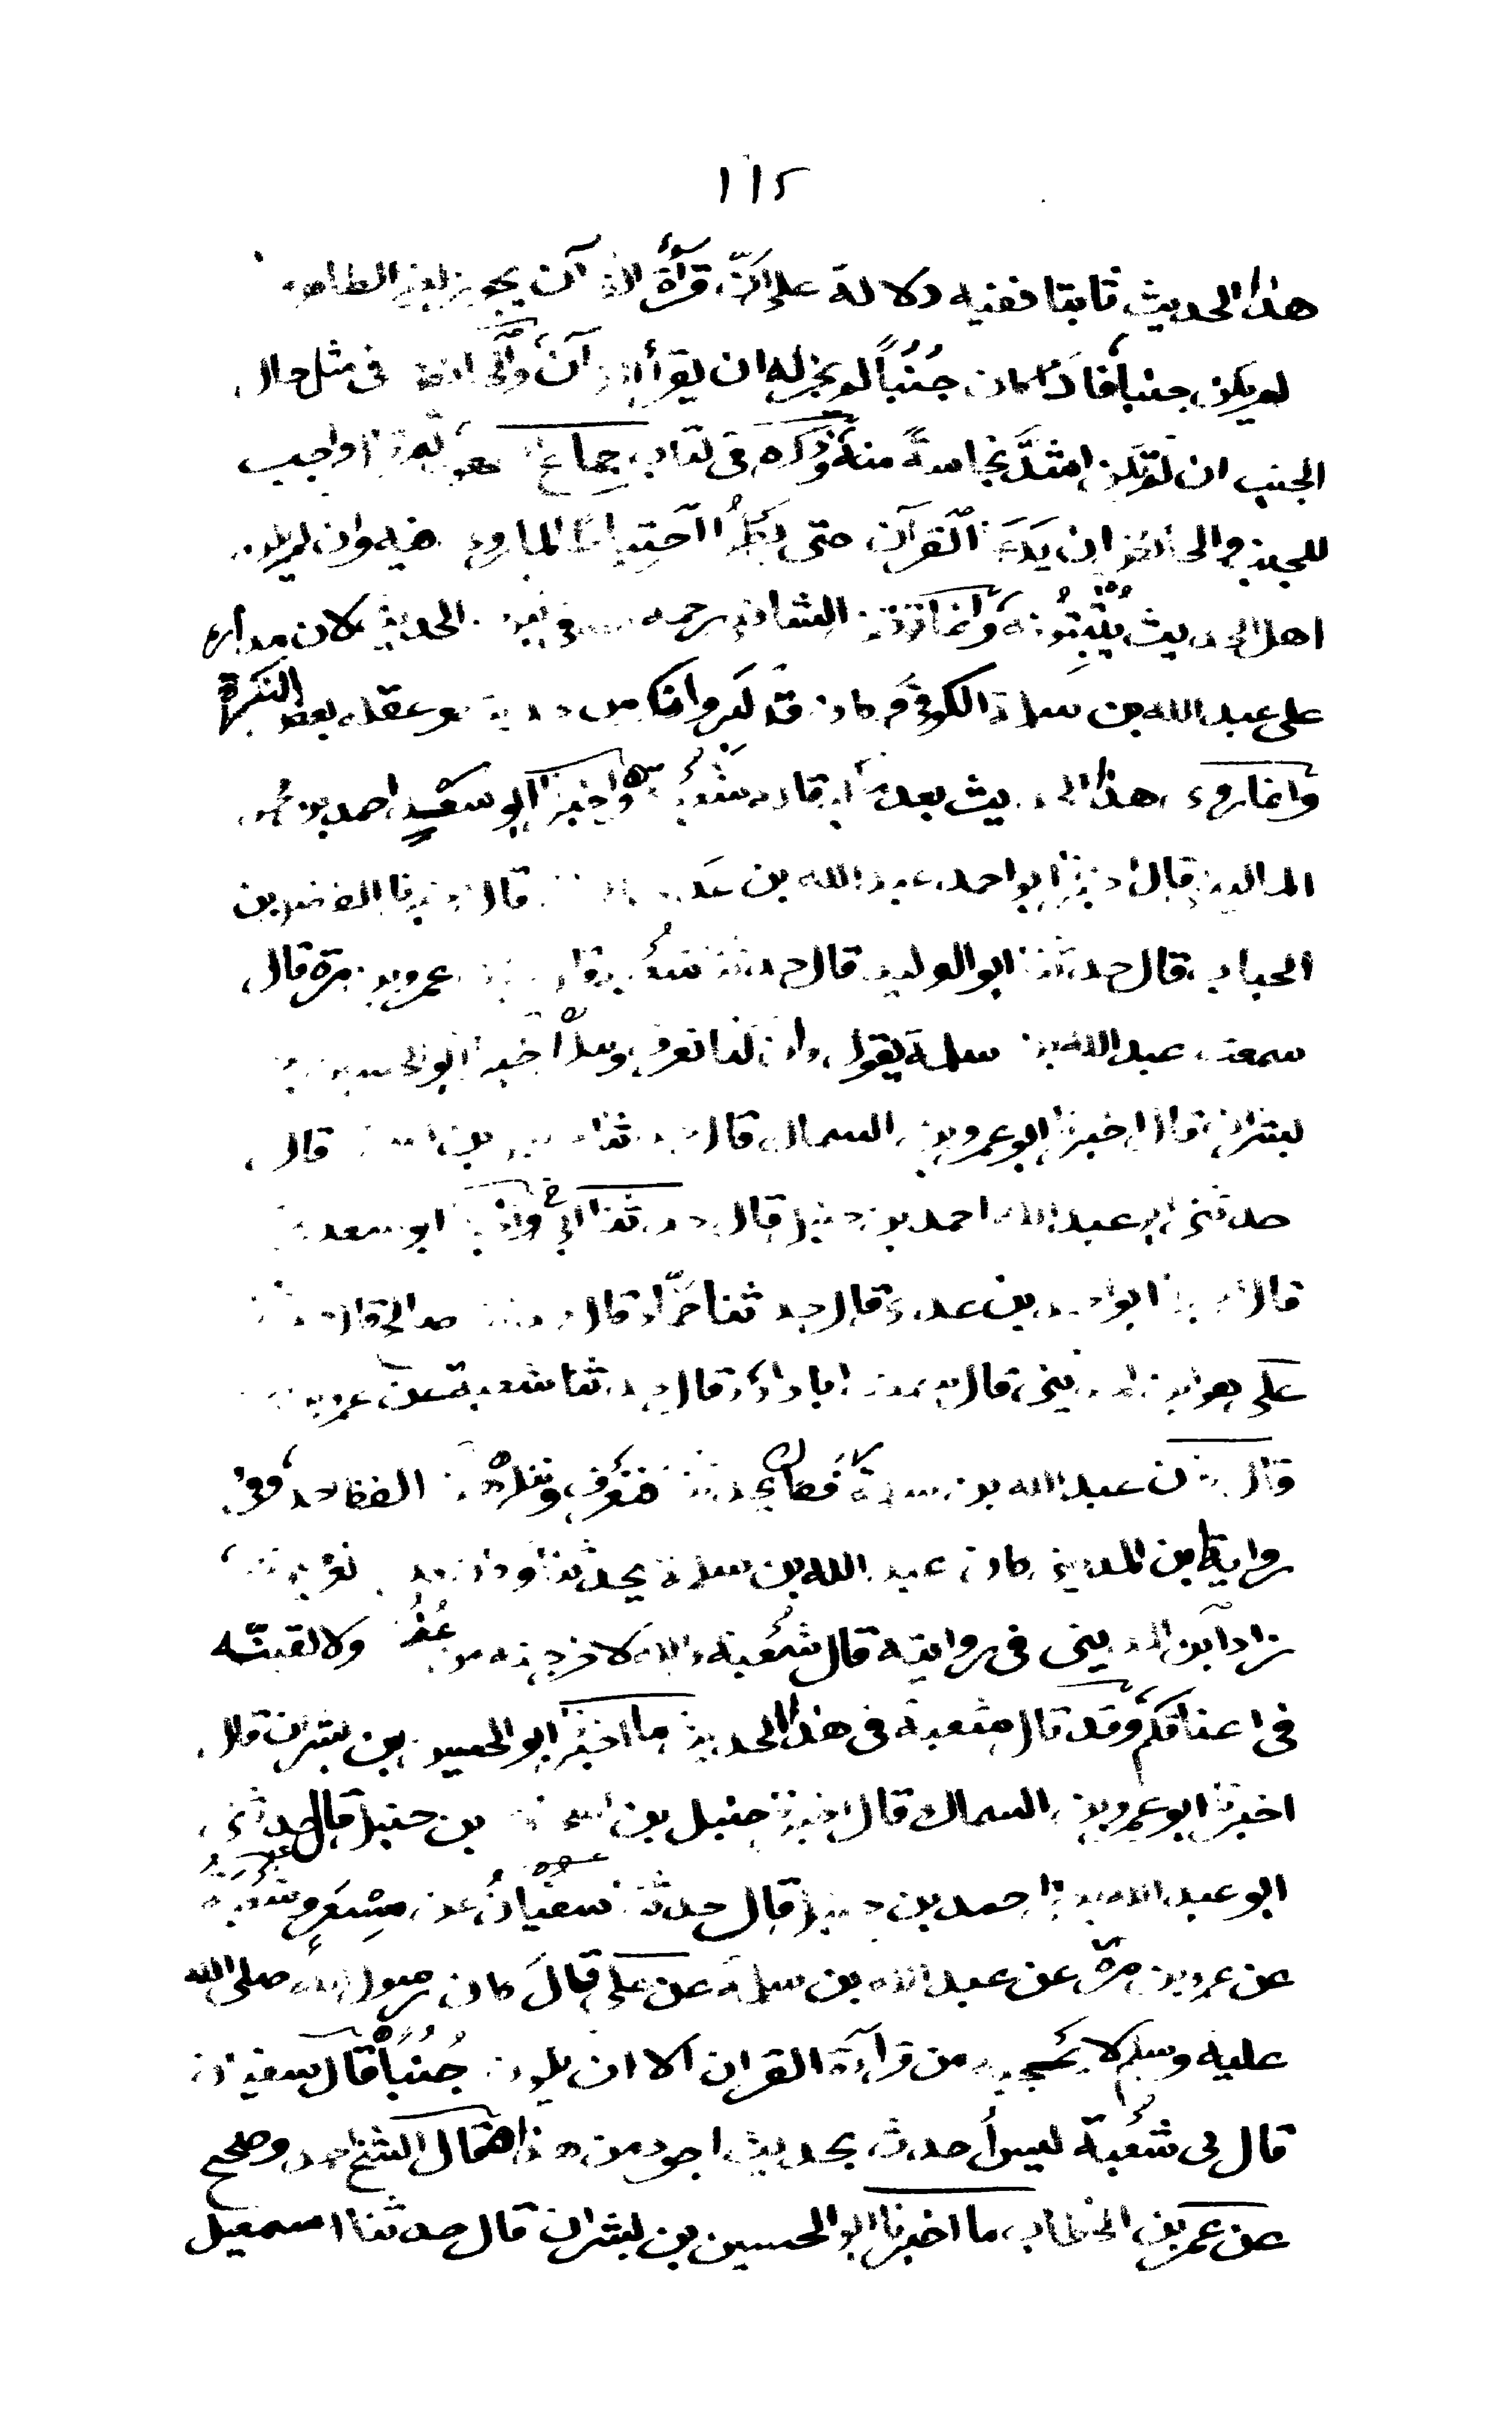 ١١٢
هذا الحديث ثابتا ففيه دلالة على ان قرأة القرآن يجوز لغير الطاهر
لم يكن جنبا فاذا كان جُنُباً لم يجز له ان يقرأ القرآن والحائض فى مثل حال
الجنب ان لم تكن اشدَّ نجاسةً منه وذكره فى كتاب جماع الطهور ثم قال واحب
للجنب والحائض ان يدعَ القرآن حتى يطهر احتياطا لما روى فيه وان لم يكن
اهل الحديث يُثْبِتُونه وانما توقف الشافعى رحمه الله فى ثبوت الحديث لان مداره
على عبد الله بن سلمة الكوفى وكان قد كبر وانكر من حديثه وعقله بعض النكرة
وانما روى هذا الحديث بعد ما كبر قاله شعبة واخبرنا ابو سعيد احمد بن محمد
المالينى قال اخبرنا ابو احمد عبد الله بن عدى الحافظ قال اخبرنا الفضل بن
الحباب قال حدثنا ابو الوليد قال حدثنا شعبة قال اخبرنى عمرو بن مرة قال
سمعت عبد الله بن سلمة يقول وانا لنعرف وننكر اخبرنا ابو الحسين بن
بشران قال اخبرنا ابو عمرو بن السماك قال حدثنا حنبل بن اسحق قال
حدثنى ابو عبد الله احمد بن حنبل قال حدثنا ح واخبرنا ابو سعد
قال اخبرنا ابو احمد بن عدى قال حدثنا قال حدثنا صالح قال حدثنا
على هو ابن المدينى قال سمعت ابا داؤد قال حدثنا شعبة عن عمرو بن
قال كان عبد الله بن سلمة فكان يحدثنا فنعرف وننكر لفظ احمد وفى
رواية ابن المدينى كان عبد الله بن سلمة يحدثنا وكان نعرف وننكر
زاد ابن المدينى فى روايته قال شعبة والله لاخرجنه من عنقى ولالقينّه
فى اعناقكم وقد قال شعبة فى هذا الحديث ما اخبرنا ابو الحسين بن بشران قال
اخبرنا ابو عمرو بن السماك قال اخبرنا حنبل بن اسحق بن حنبل قال حدثنى
ابو عبد الله احمد بن حنبل قال حدثنا سفيانُ عن مِسْعَر وشعبة
عن عمرو بن مرة عن عبد الله بن سلمة عن على قالَ كان رسول الله صلى الله
عليه وسلم لا يحجبه من قرآءة القران الا ان يكون جُنُباً قال سفيان
قال لى شعبة ليس احدث بحديث اجود من هذا قال الشيخ احمد وصح
عن عمر بن الخطاب ما اخبرنا ابو الحسين بن بشران قال حدثنا اسمعيل